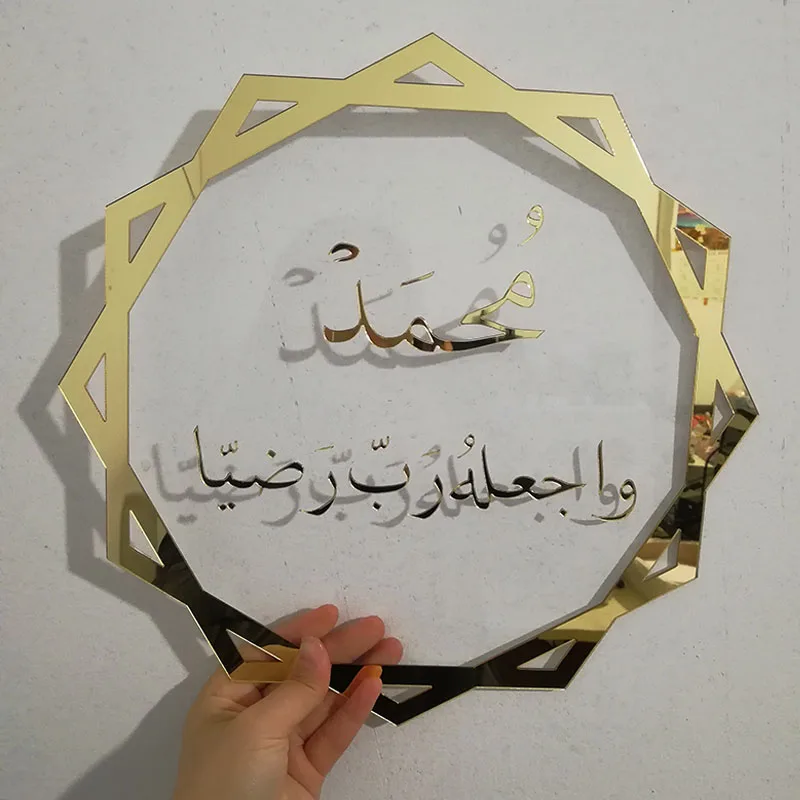 مُحمَدْ
ووا جعلهُ رَبّ رَضيّا